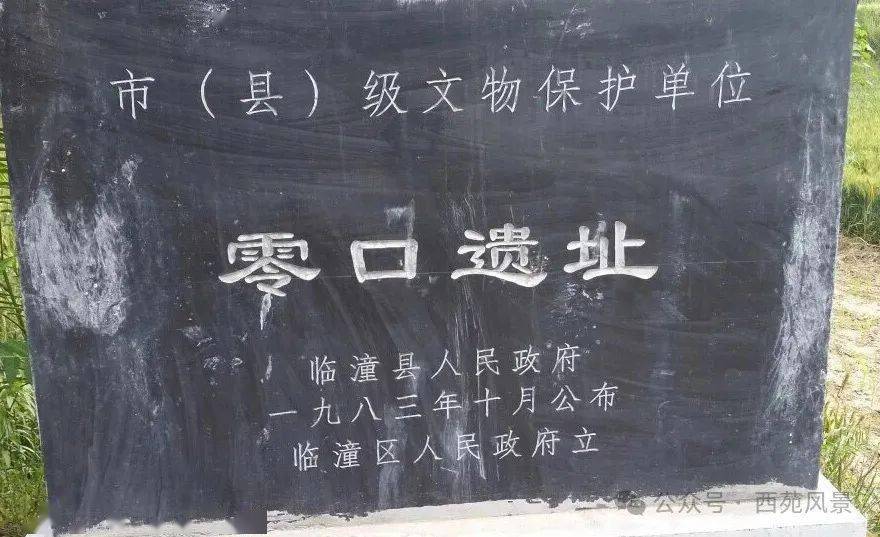 市（县）级文物保护单位
零口遗址
临潼县人民政府
一九八三年十月公布
临潼区人民政府立
公众号·西苑风景